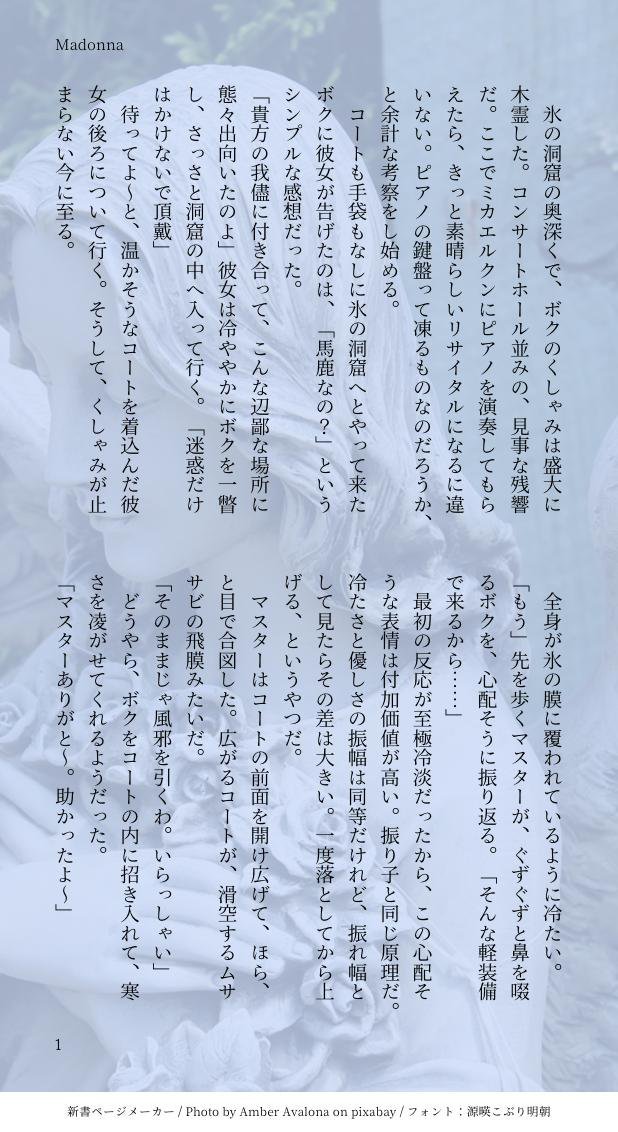 Madonna
　氷の洞窟の奥深くで、ボクのくしゃみは盛大に
木霊した。コンサートホール並みの、見事な残響
だ。ここでミカエルクンにピアノを演奏してもら
えたら、きっと素晴らしいリサイタルになるに違
いない。ピアノの鍵盤って凍るものなのだろうか、
と余計な考察をし始める。
　コートも手袋もなしに氷の洞窟へとやって来た
ボクに彼女が告げたのは、「馬鹿なの？」という
シンプルな感想だった。
「貴方の我儘に付き合って、こんな辺鄙な場所に
態々出向いたのよ」彼女は冷ややかにボクを一瞥
し、さっさと洞窟の中へ入って行く。「迷惑だけ
はかけないで頂戴」
　待ってよ〜と、温かそうなコートを着込んだ彼
女の後ろについて行く。そうして、くしゃみが止
まらない今に至る。
　全身が氷の膜に覆われているように冷たい。
「もう」先を歩くマスターが、ぐずぐずと鼻を啜
るボクを、心配そうに振り返る。「そんな軽装備
で来るから……」
　最初の反応が至極冷淡だったから、この心配そ
うな表情は付加価値が高い。振り子と同じ原理だ。
冷たさと優しさの振幅は同等だけれど、振れ幅と
して見たらその差は大きい。一度落としてから上
げる、というやつだ。
　マスターはコートの前面を開け広げて、ほら、
と目で合図した。広がるコートが、滑空するムサ
サビの飛膜みたいだ。
「そのままじゃ風邪を引くわ。いらっしゃい」
　どうやら、ボクをコートの内に招き入れて、寒
さを凌がせてくれるようだった。
「マスターありがと〜。助かったよ〜」
1
新書ページメーカー / Photo by Amber Avalona on pixabay / フォント：源暎こぶり明朝